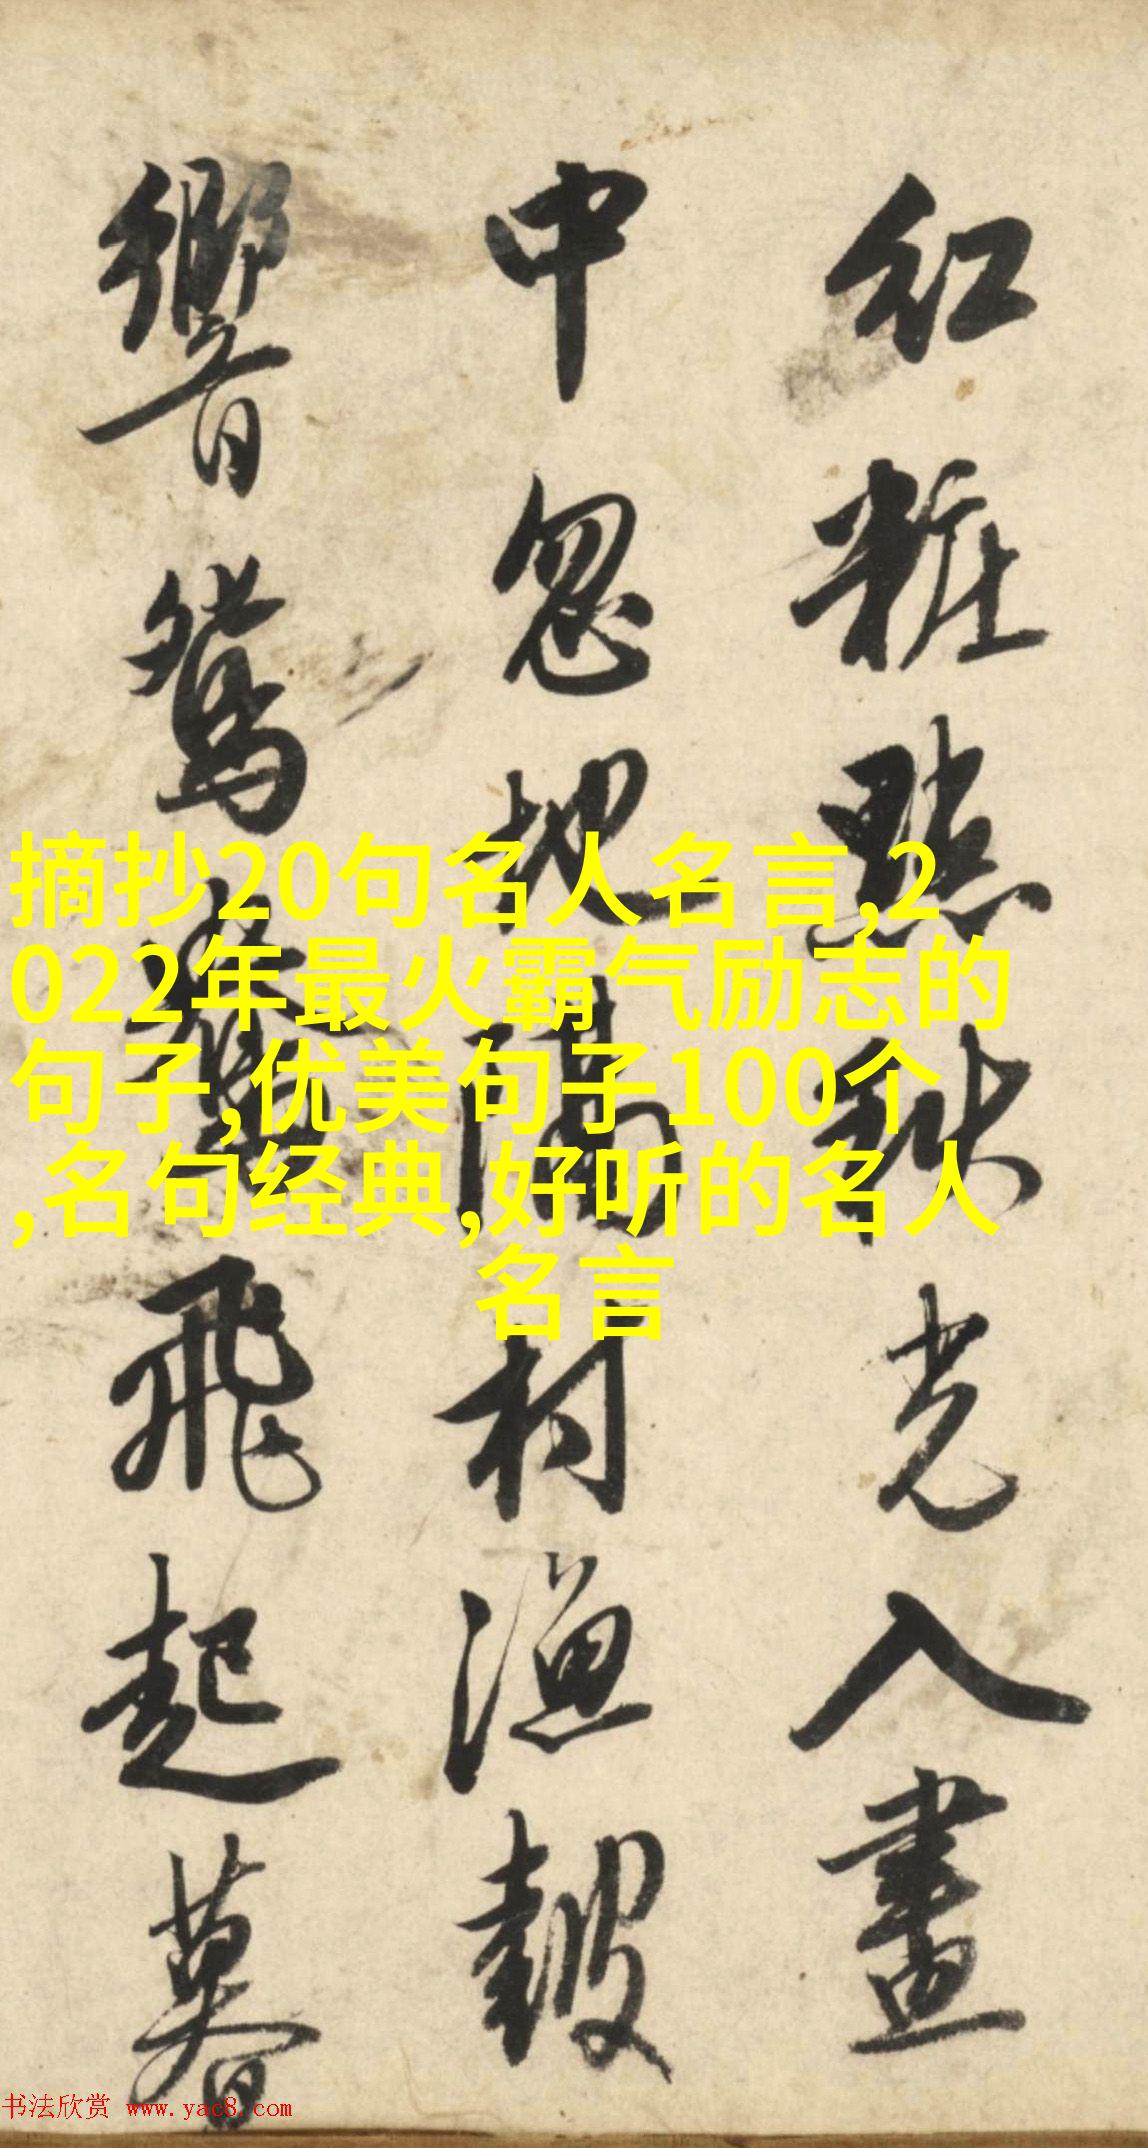 紅粧點秋光入畫
中忽地隔村漁鼓
響鴛飛起暮
摘抄20句名人名言,2
022年最火霸气励志的
句子,优美句子100个
,名句经典,好听的名人
名言
书法欣赏 www.yac8.com